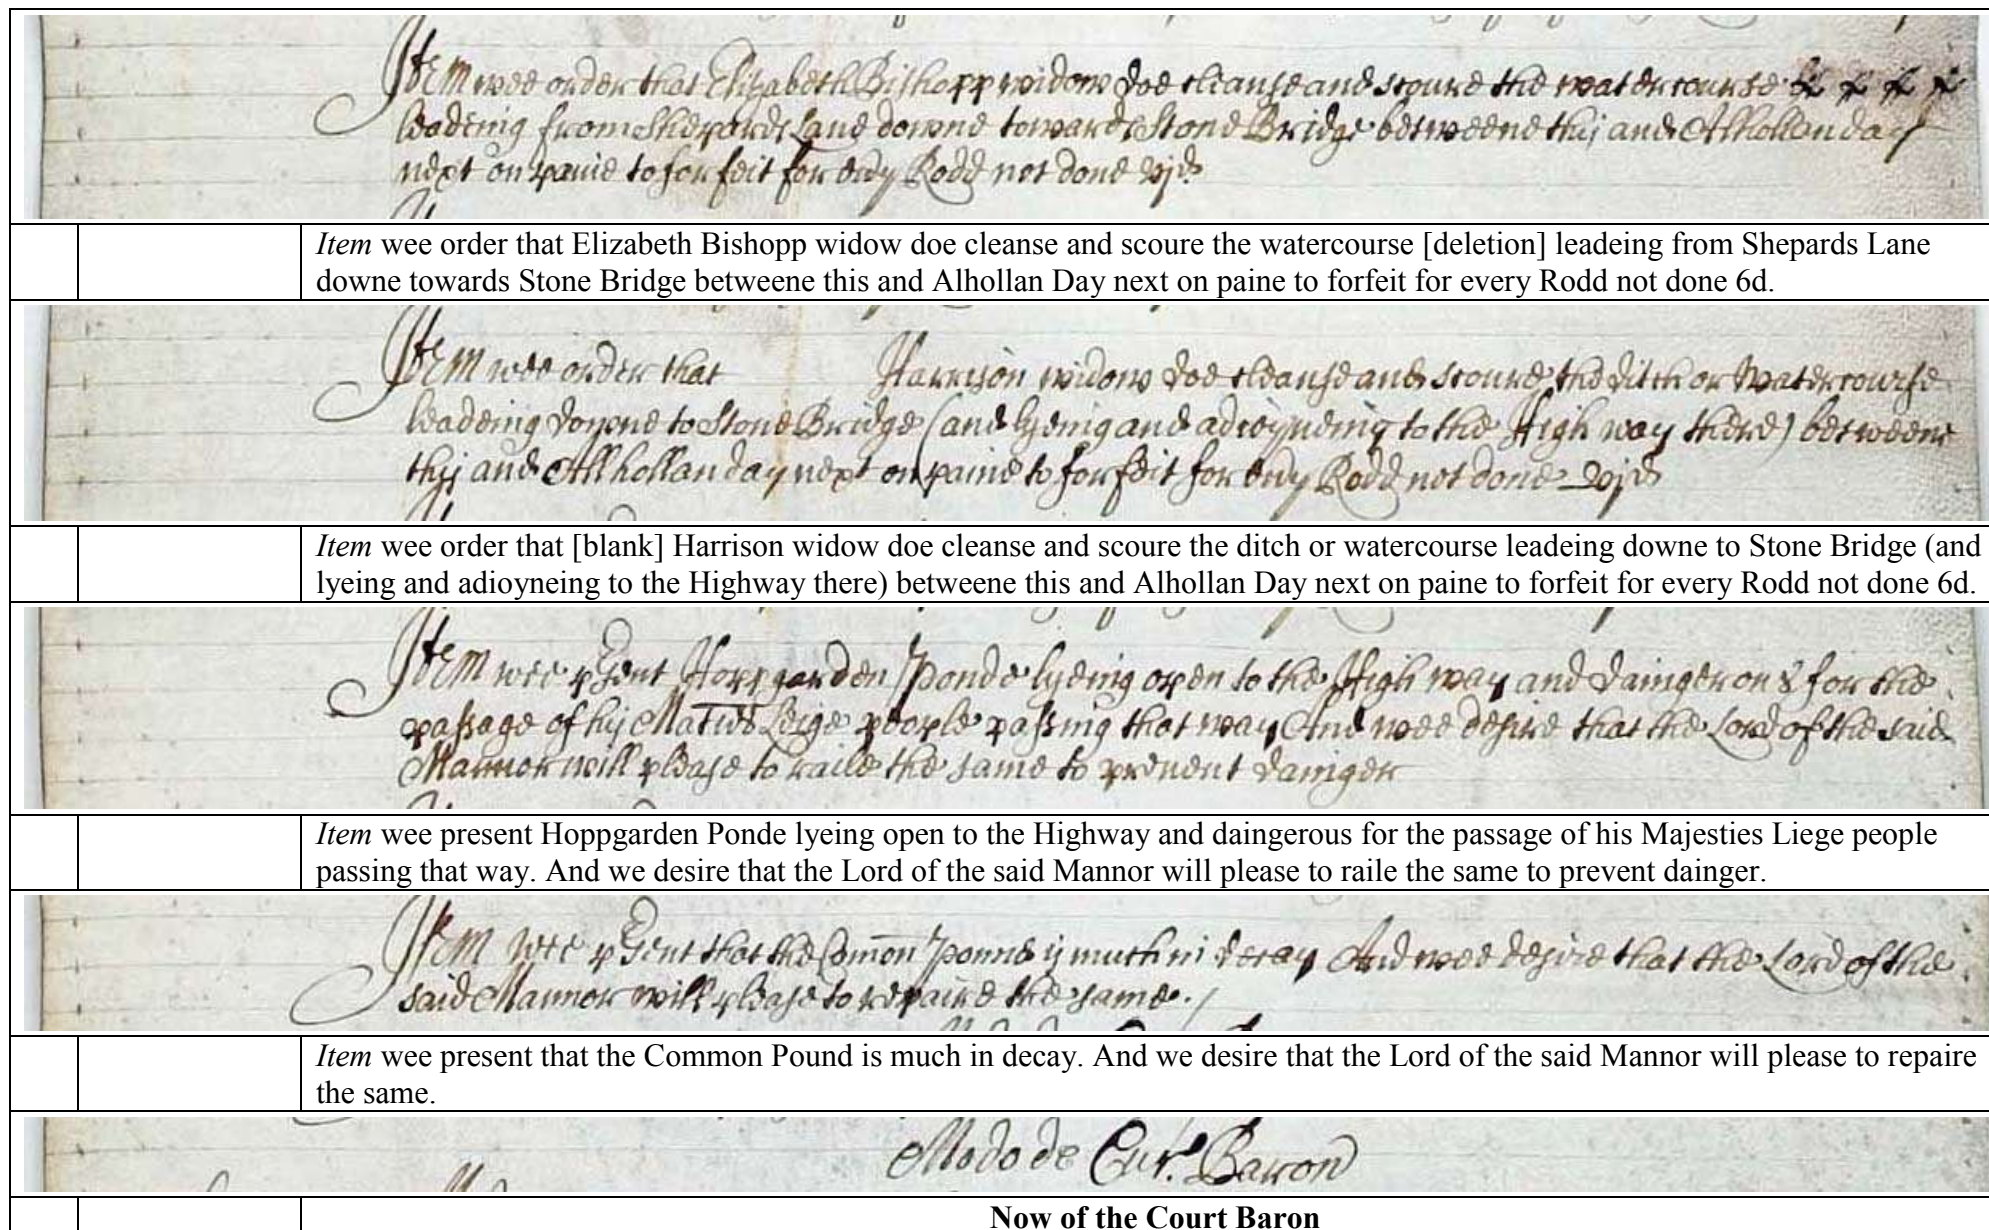 Item wee order that Elizabeth Bishopp widow doe cleanse and scoure the watercourse
leadeing from Shepards Lane downe towards Stone Bridge betweene this and Alhollan day
next on paine to forfeit for ev'y Rodd not done vjd.
Item wee order that Elizabeth Bishopp widow doe cleanse and scoure the watercourse [deletion] leadeing from Shepards Lane
downe towards Stone Bridge betweene this and Alhollan Day next on paine to forfeit for every Rodd not done 6d.
Item wee order that Harrison widow doe cleanse and scoure the ditch or Watercourse
leadeing downe to Stone Bridge (and lyeing and adioyneing to the High way there) betweene
this and Allhollan day next on paine to forfeit for ev'y Rodd not done vjd
Item wee order that [blank] Harrison widow doe cleanse and scoure the ditch or watercourse leadeing downe to Stone Bridge (and
lyeing and adioyneing to the Highway there) betweene this and Alhollan Day next on paine to forfeit for every Rodd not done 6d.
Item wee p'sent Hoppgarden Ponde lyeing open to the High way and daingerous for the
passage of his Ma'ties Leige people passing that way And wee desire that the Lord of the said
Mannor will please to raile the same to prevent dainger
Item wee present Hoppgarden Ponde lyeing open to the Highway and daingerous for the passage of his Majesties Liege people
passing that way. And we desire that the Lord of the said Mannor will please to raile the same to prevent dainger.
Item wee p'sent that the Com̄on Pound is much in decay And wee desire that the Lord of the
said Mannor will please to repaire the same.
Item wee present that the Common Pound is much in decay. And we desire that the Lord of the said Mannor will please to repaire
the same.
Modo de Cur. Baron
Now of the Court Baron